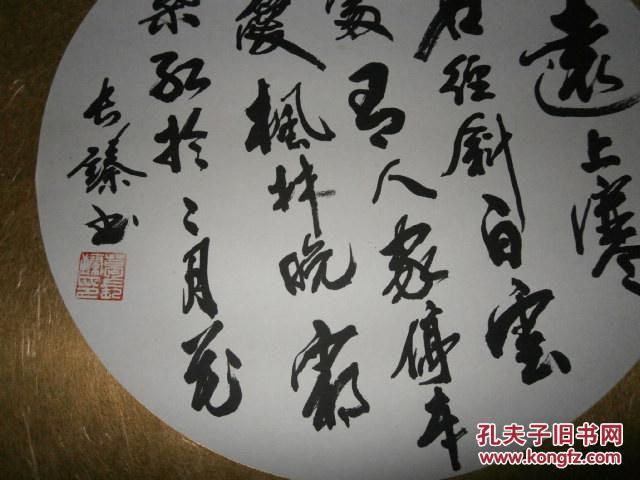 遠上寒
石徑斜白雲
處有人家停車
愛楓林晚霜
葉紅於二月花
长臻书
孔夫子旧书网
www.kongfz.com